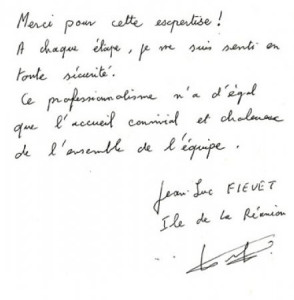 Merci pour cette expertise !
A chaque étape, je me suis senti en
toute sécurité.
Ce professionnalisme n'a d'égal
que l'accueil convivial et chaleureux
de l'ensemble de l'équipe.
Jean-Luc FIEVET
Ile de la Réunion